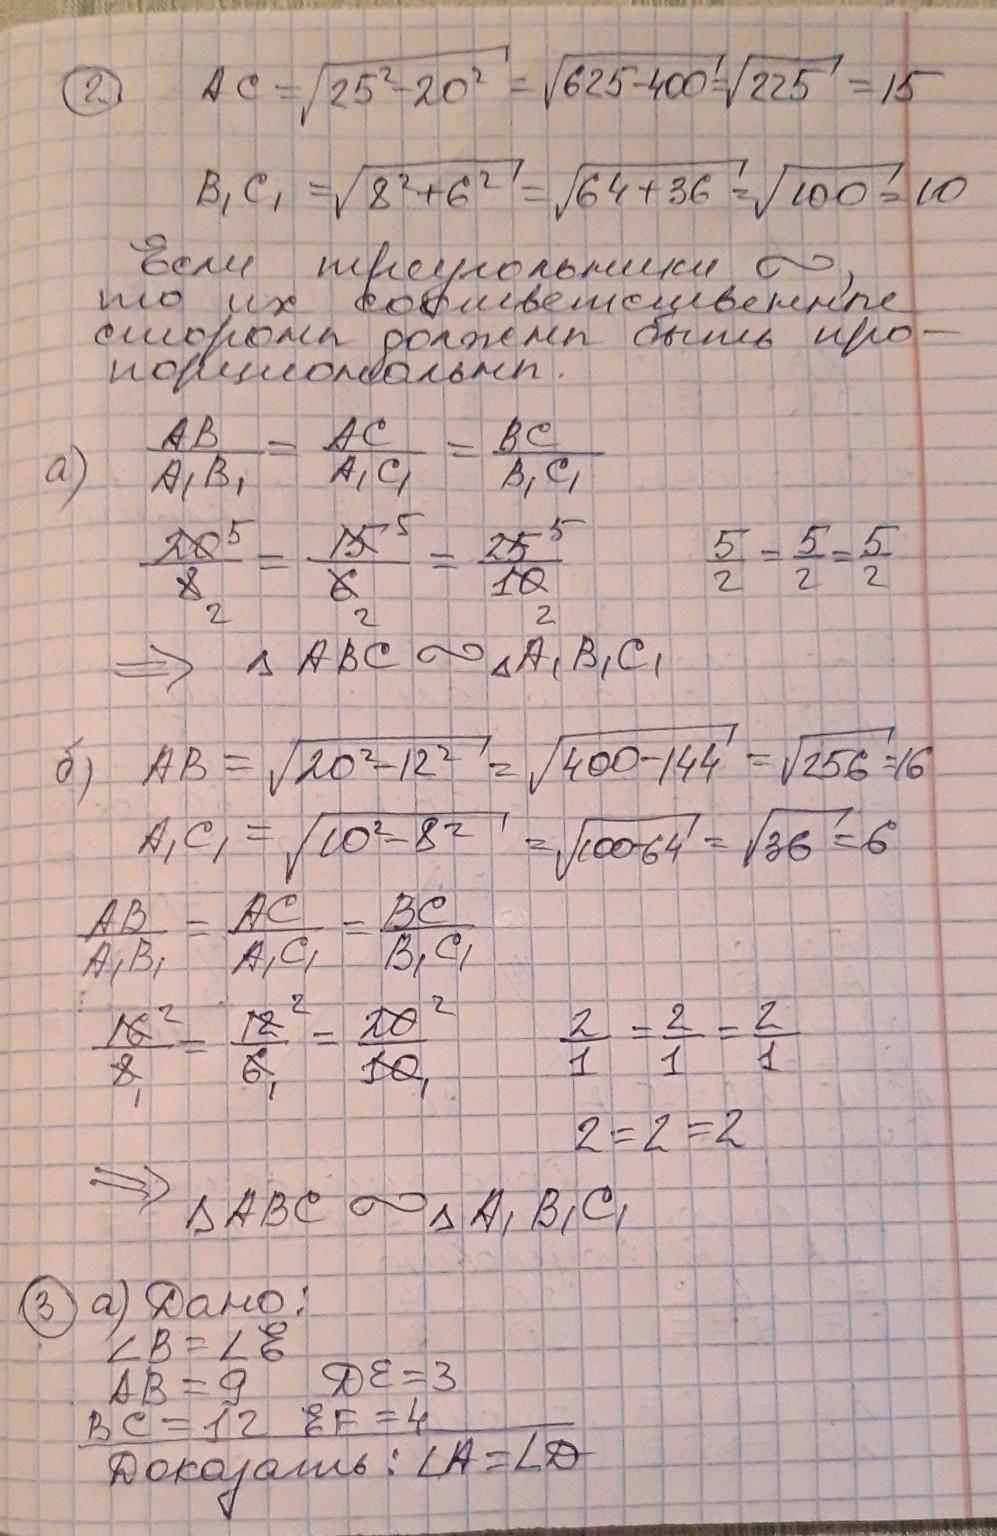 2. AC = √(25² - 20²) = √(625 - 400) = √225 = 15
B₁C₁ = √(8² + 6²) = √(64 + 36) = √100 = 10
Если треугольники ∞,
то их соответственные
стороны должны быть про-
порциональны.
а) AB/A₁B₁ = AC/A₁C₁ = BC/B₁C₁
20⁵/8₂ = 15⁵/6₂ = 25⁵/10₂ 5/2 = 5/2 = 5/2
⇒ △ ABC ∞ △ A₁B₁C₁
б) AB = √(20² - 12²) = √(400 - 144) = √256 = 16
A₁C₁ = √(10² - 8²) = √(100-64) = √36 = 6
AB/A₁B₁ = AC/A₁C₁ = BC/B₁C₁
16²/8₁ = 12²/6₁ = 20²/10₁ 2/1 = 2/1 = 2/1
2 = 2 = 2
⇒ △ ABC ∞ △ A₁B₁C₁
3 а) Дано:
∠B = ∠E
AB = 9 DE = 3
BC = 12 EF = 4
Доказать: ∠A = ∠D